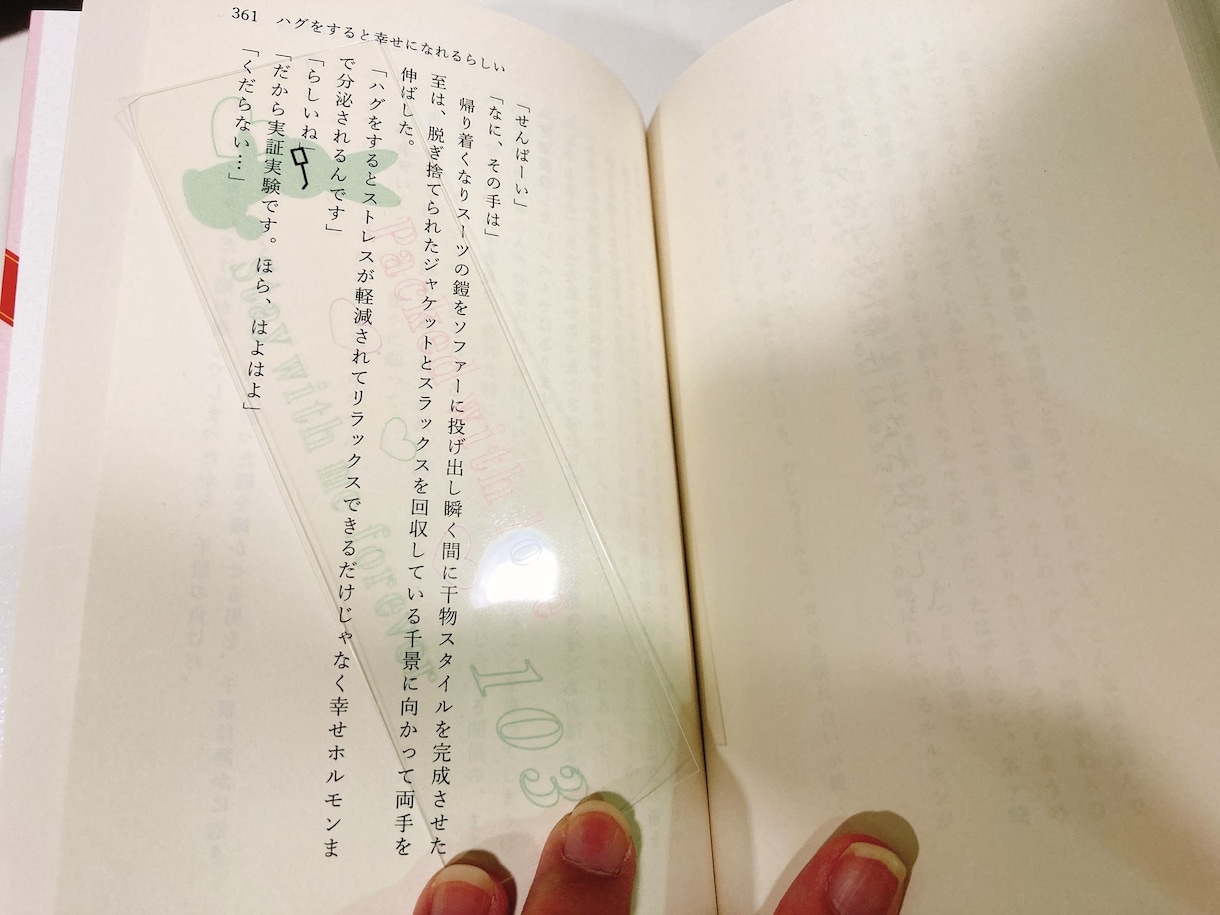 361 ハグをすると幸せになれるらしい
「せんぱーい」
「なに、その手は」
帰り着くなりスーツの鎧をソファーに投げ出し瞬く間に干物スタイルを完成させた
至は、脱ぎ捨てられたジャケットとスラックスを回収している千景に向かって両手を
伸ばした。
「ハグをするとストレスが軽減されてリラックスできるだけじゃなく幸せホルモンま
で分泌されるんです」
「らしいね」
「だから実証実験です。ほら、はよはよ」
「くだらない…」
Packed with love
Stay with me forever
103